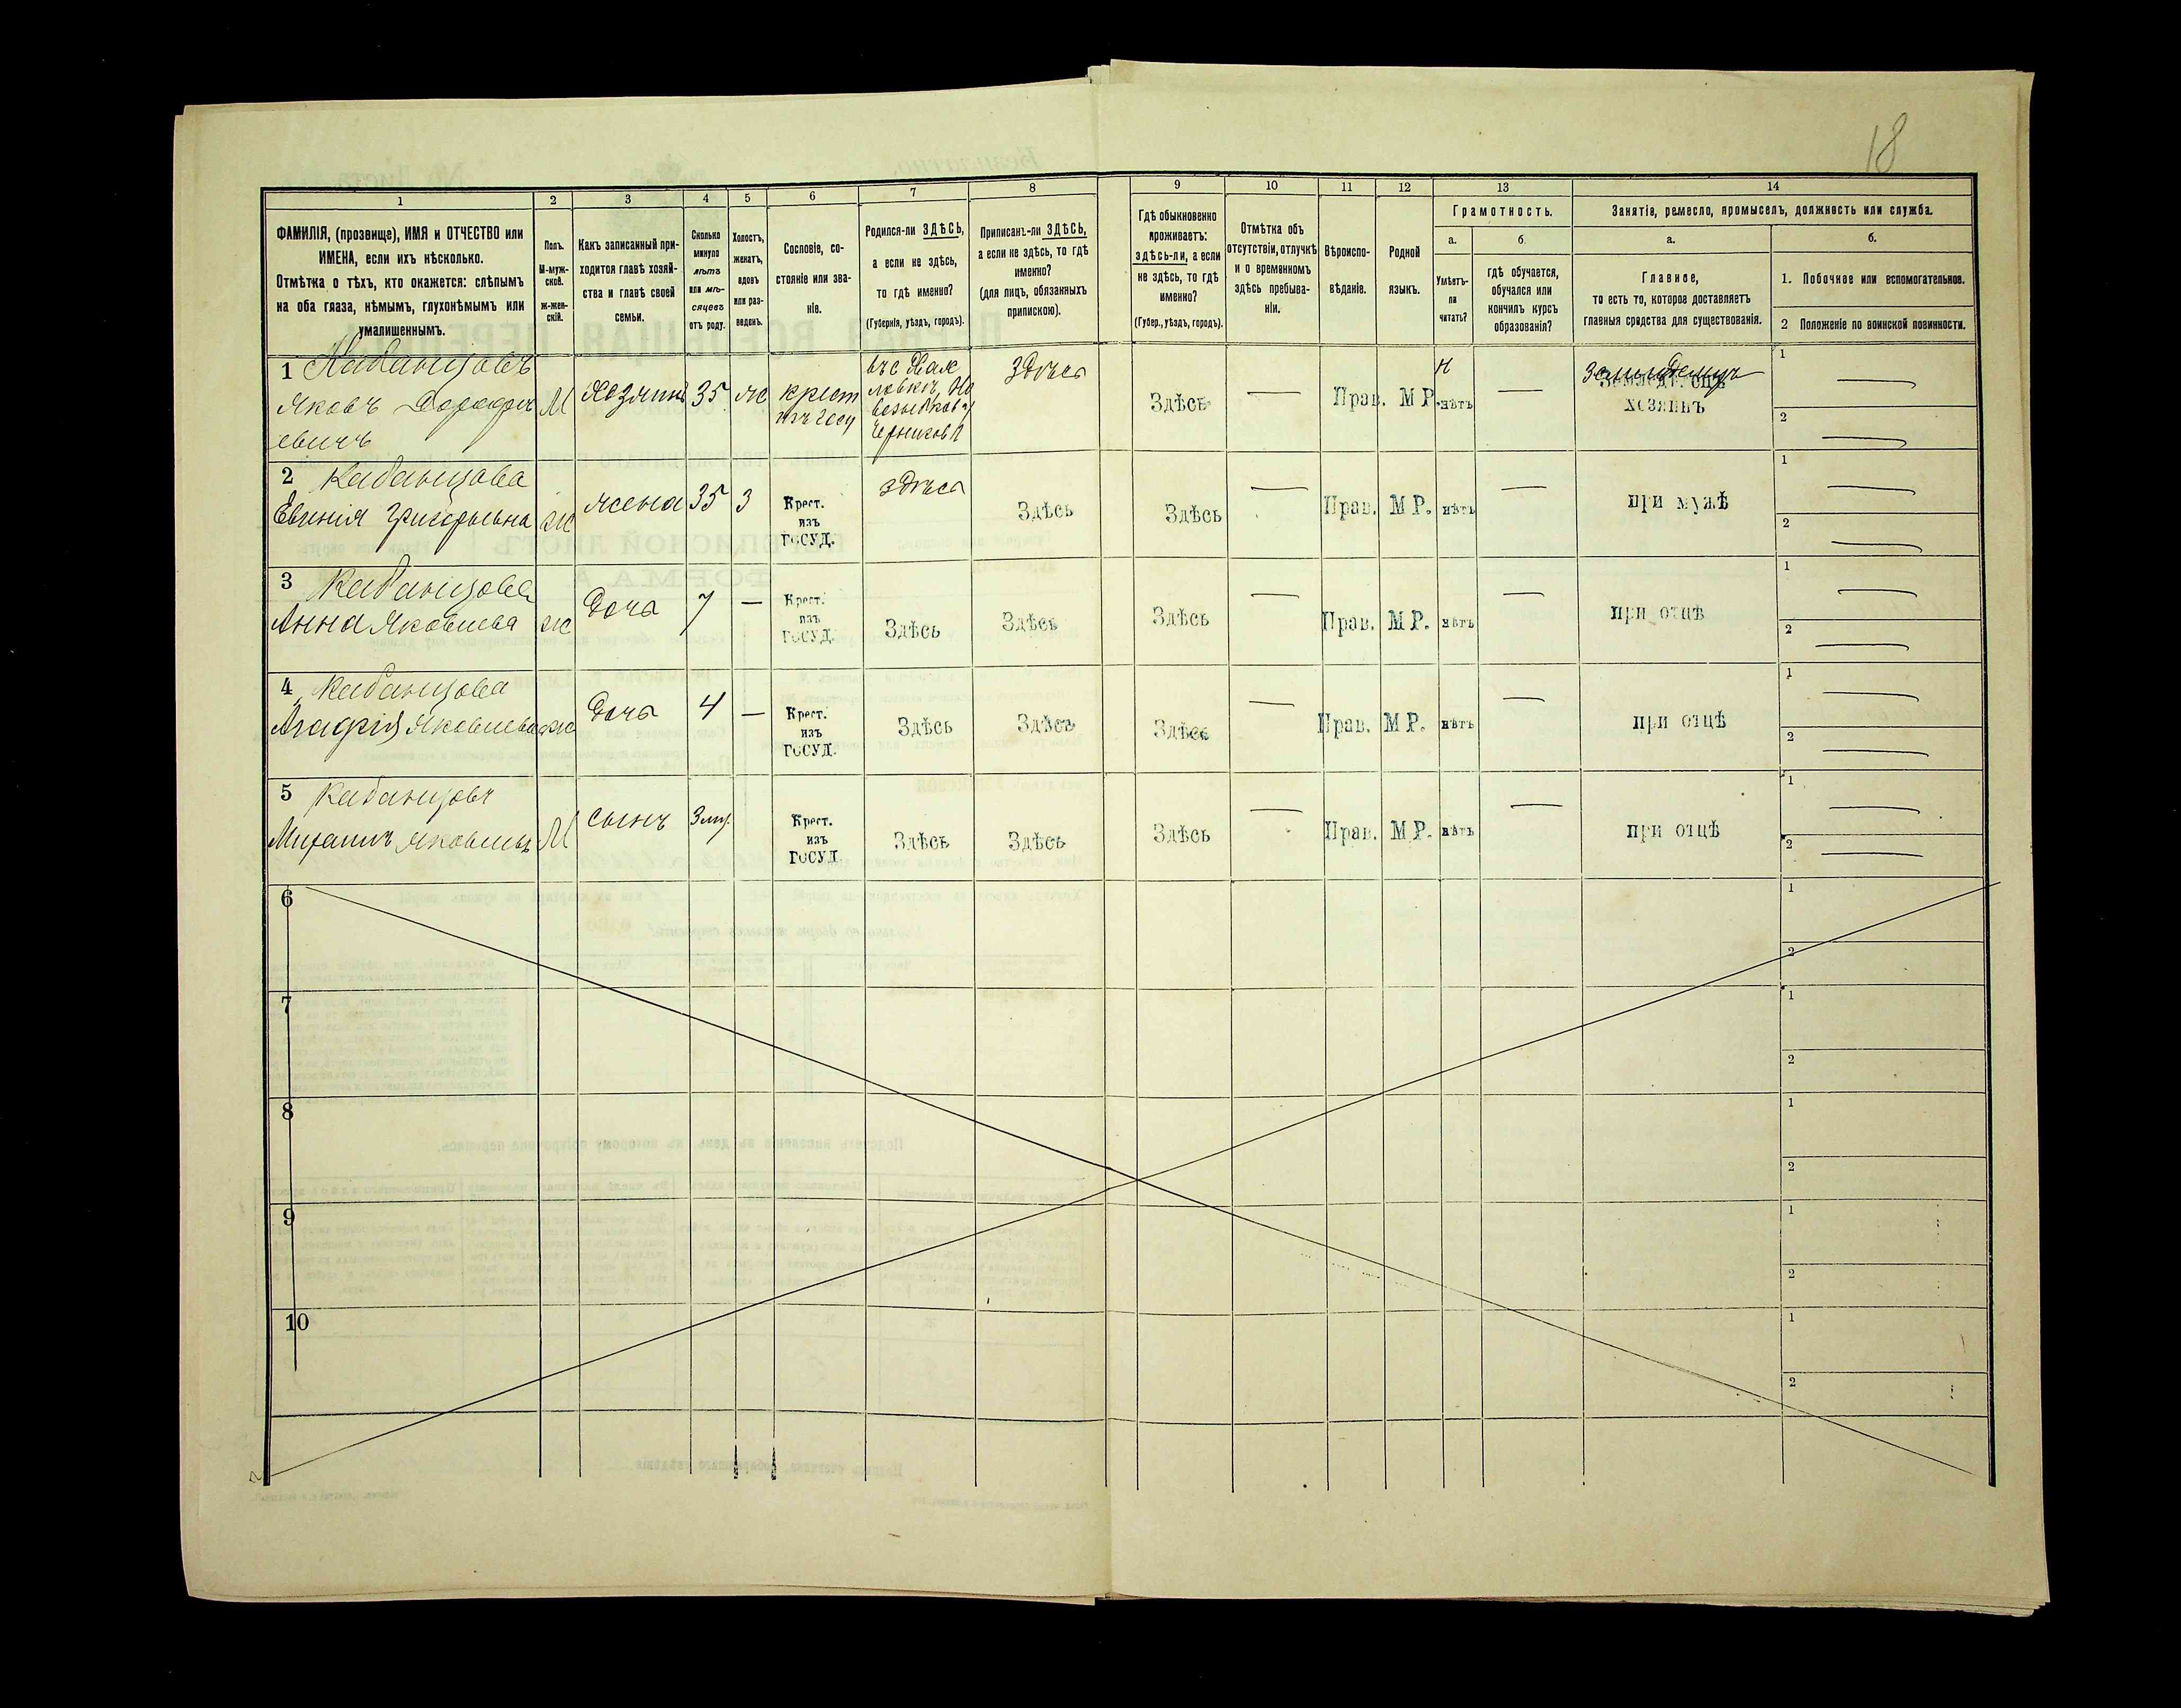 18
1
2
3
4
5
6
7
8
9
10
11
12
13
14
ФАМИЛІЯ, (прозвище), ИМЯ и ОТЧЕСТВО или
ИМЕНА, если ихъ нѣсколько.
Отмѣтка о тѣхъ, кто окажется: слѣпымъ
на оба глаза, нѣмымъ, глухонѣмымъ или
умалишеннымъ.
Полъ.
М-муж-
ской.
Ж-жен-
скій.
Какъ записанный при-
ходится главѣ хозяй-
ства и главѣ своей
семьи.
Сколько
минуло
лѣтъ
или мѣ-
сяцевъ
отъ роду.
Холостъ,
женатъ,
вдовъ
или раз-
веденъ.
Сословіе, со-
стояніе или зва-
ніе.
Родился-ли ЗДѢСЬ,
а если не здѣсь,
то гдѣ именно?
(Губернія, уѣздъ, городъ).
Приписанъ-ли ЗДѢСЬ,
а если не здѣсь, то гдѣ
именно?
(для лицъ, обязанныхъ
припискою).
Гдѣ обыкновенно
проживаетъ:
здѣсь-ли, а если
не здѣсь, то гдѣ
именно?
(Губер., уѣздъ, городъ).
Отмѣтка объ
отсутствіи, отлучкѣ
и о временномъ
здѣсь пребыва-
ніи.
Вѣроиспо-
вѣданіе.
Родной
языкъ.
Грамотность.
а.
Умѣетъ-
ли
читать?
б.
гдѣ обучается,
обучался или
кончилъ курсъ
образованія?
Занятіе, ремесло, промыселъ, должность или служба.
а.
Главное,
то есть то, которое доставляетъ
главныя средства для существованія.
б.
1. Побочное или вспомогательное.
2 Положеніе по воинской повинности.
1 Кабанцовъ
Яковъ Дорофе
евичъ
М
Хозяинъ
35
ж
крест
изъ госу
Здѣсь
Здѣсь
—
Прав.
М Р.
нѣтъ
—
Земледѣлецъ
хозяинъ
1 —
2 —
2 Кабанцова
Евгенія Григорьевна
ж
жена
35
З
Крест.
изъ
ГОСУД.
здѣсь
Здѣсь
Здѣсь
—
Прав.
М Р.
нѣтъ
—
при мужѣ
1 —
2 —
3 Кабанцова
Анна Яковлева
ж
дочь
7
—
Крест.
изъ
ГОСУД.
Здѣсь
Здѣсь
Здѣсь
—
Прав.
М Р.
нѣтъ
—
при отцѣ
1 —
2 —
4 Кабанцова
Агафія Яковлева
ж
дочь
4
—
Крест.
изъ
ГОСУД.
Здѣсь
Здѣсь
Здѣсь
—
Прав.
М Р.
нѣтъ
—
при отцѣ
1 —
2 —
5 Кабанцовъ
Михаилъ Яковлевъ
М
сынъ
Крест.
изъ
ГОСУД.
Здѣсь
Здѣсь
Здѣсь
—
Прав.
М Р.
нѣтъ
—
при отцѣ
1 —
2 —
6
1
2
7
1
2
8
1
2
9
1
2
10
1
2